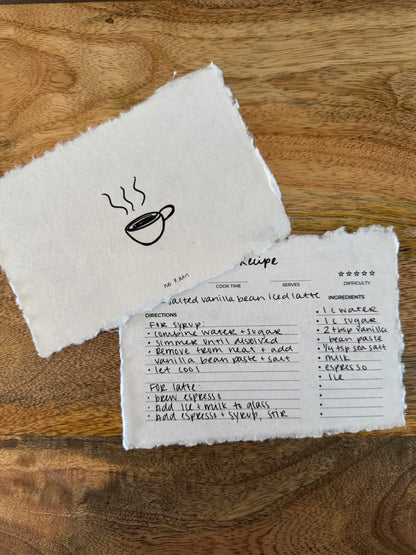 no rain
Recipe
COOK TIME
SERVES
DIFFICULTY
salted vanilla bean iced latte
DIRECTIONS
FOR SYRUP:
• combine water + sugar
• simmer until disolved
• remove from heat + add
vanilla bean paste + salt
• let cool
For latte:
• brew espresso
• Add ice + milk to glass
• Add espresso + syrup, stir
INGREDIENTS
• 1 c water
• 1 c sugar
• 2 tbsp vanilla
bean paste
• 1/4 tsp sea salt
• milk
• espresso
• ice